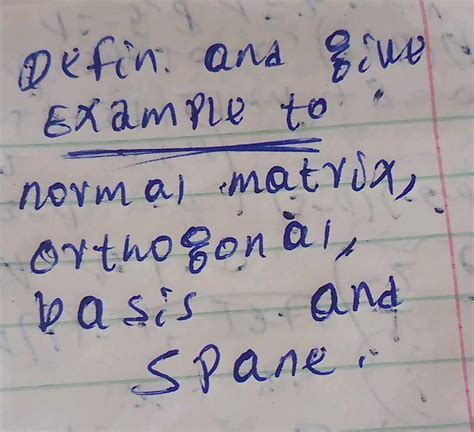 Defin. and give
Example to
normal matrix,
orthogonal,
basis and
spane.